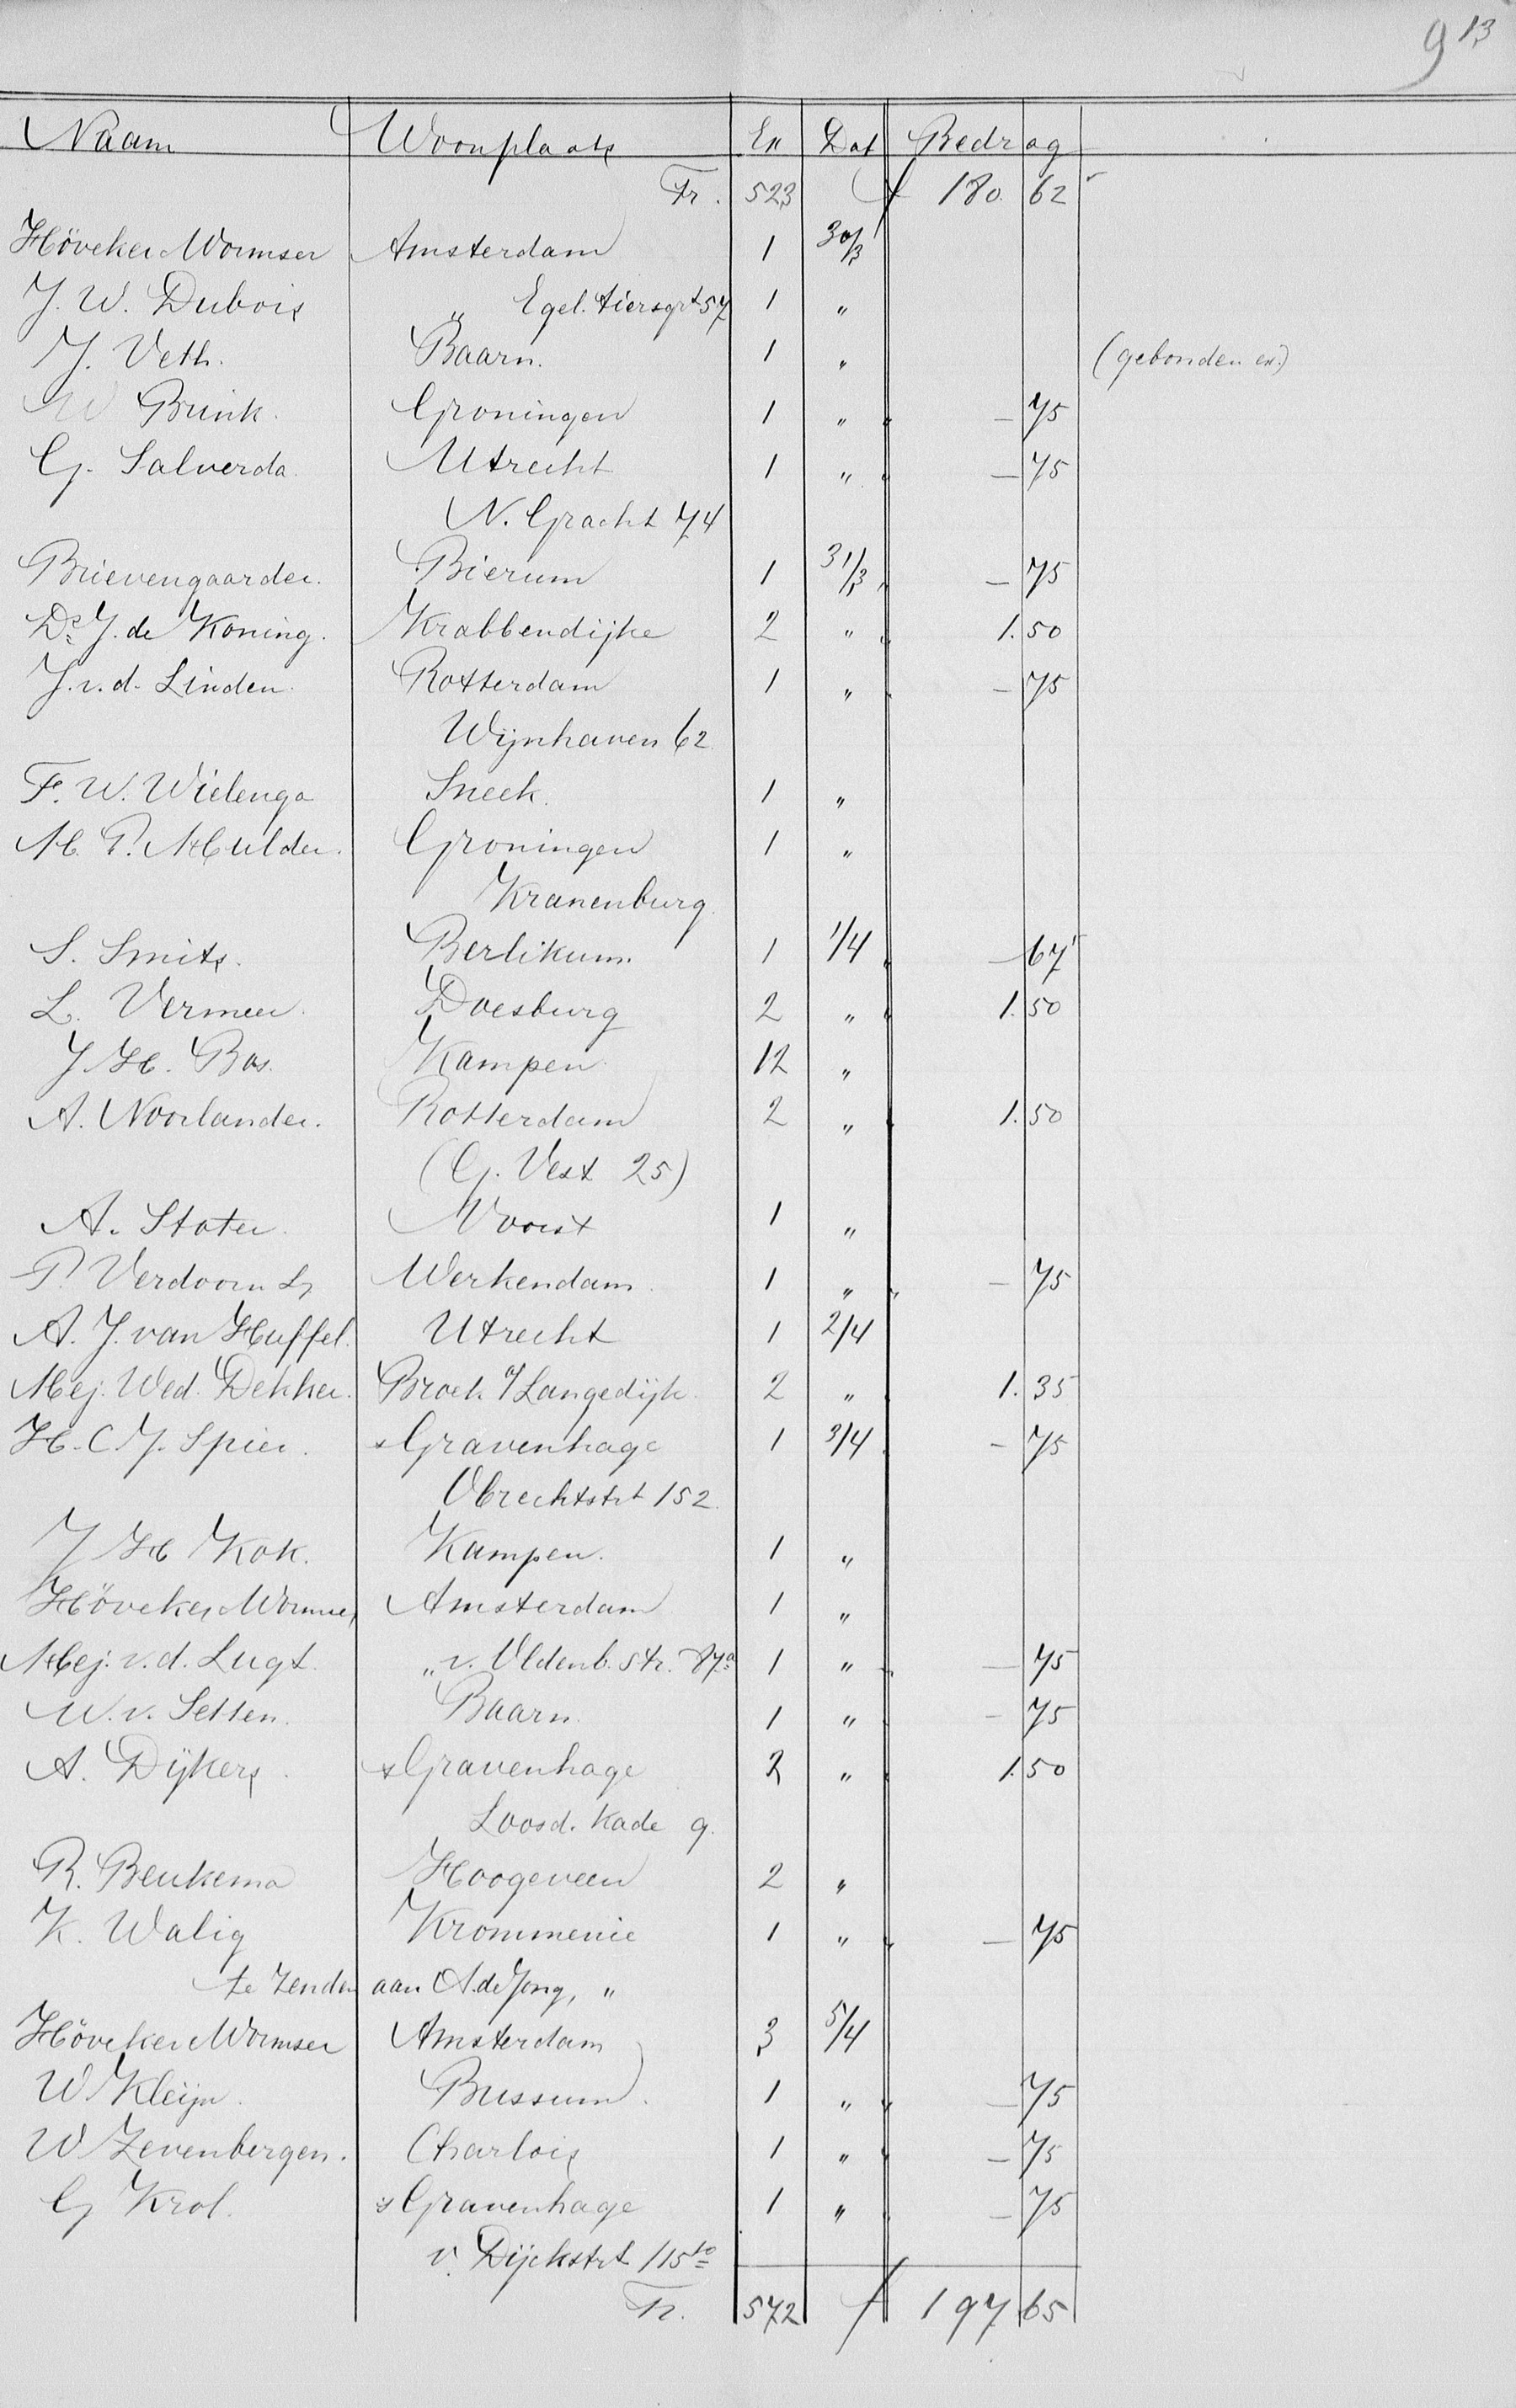 9 13
Naam Woonplaats Ex Dat Bedrag
Tr. 523 f 180. 62⁵
Höveker Wormser Amsterdam 1 30/3
J. W. Dubois „ Egel. tiersgrt 57 1 „
J. Veth. Baarn. 1 „ (gebonden ex.)
W Brink. Groningen 1 „ „ — 75
G. Salverda. Utrecht 1 „ „ — 75
N. Gracht 74
Brievengaarder. Bierum 1 31/3 „ — 75
Ds J. de Koning. Krabbendijke 2 „ „ 1. 50
J. v. d. Linden. Rotterdam 1 „ „ — 75
Wijnhaven 62
F. W. Wielenga Sneek. 1 „
M. P. Mulder. Groningen 1 „
Kranenburg
S. Smits. Berlikum. 1 1/4 „ — 67⁵
L. Vermeer. Doesburg 2 „ „ 1. 50
J. H. Bos. Kampen 12 „
A. Noorlander. Rotterdam 2 „ „ 1. 50
(G. Vest 25)
A. Stoter. Voorst 1 „
P. Verdoorn Lz Werkendam. 1 „ „ — 75
A. J. van Huffel. Utrecht 1 2/4
Mej. Wed. Dekker. Broek o/Langedijk. 2 „ „ 1. 35
H. C. J. Spier. s Gravenhage 1 3/4 „ — 75
Obrechtstrt 152.
J H Kok. Kampen. 1 „
Höveker Wormser Amsterdam 1 „
Mej. v. d. Lugt. „ v. Oldenb. str. 87a 1 „ „ — 75
W. v. Setten. Baarn. 1 „ „ — 75
A. Dijkers. s Gravenhage 2 „ „ 1. 50
Loosd. Kade 9.
R. Beukema Hoogeveen 2 „
K. Walig Krommenie 1 „ „ — 75
te zenden aan A. de Jong, „
Höveker Wormser Amsterdam 3 5/4
W. Kleijn. Bussum. 1 „ „ — 75
W Zevenbergen. Charlois 1 „ „ — 75
G Krol. s Gravenhage 1 „ „ — 75
v. Dijckstrt 115to
Tr. 572 f 197 65